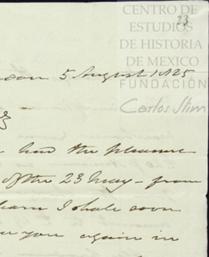 CENTRO DE
ESTUDIOS
DE HISTORIA
DE MEXICO
FUNDACIÓN
Carlos Slim
23
5 August 1825
had the pleasure
of the 23 May - from
I shall soon
you again in